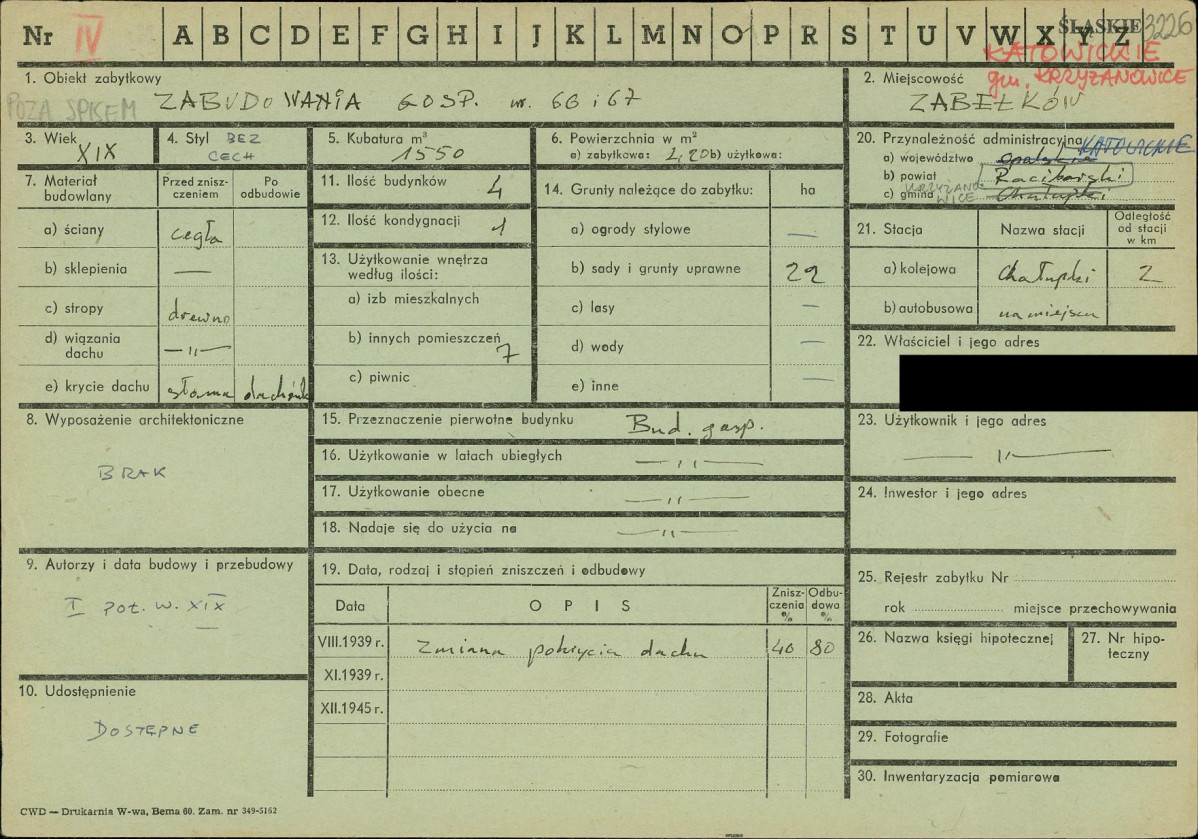 Nr IV A B C D E F G H I J K L M N O P R S T U V W X Y Z ŚLĄSKIE 3226
KATOWICKIE
gm. KRZYŻANOWICE
1. Obiekt zabytkowy
POZA SPISEM ZABUDOWANIA GOSP. nr. 66 i 67
2. Miejscowość
ZABEŁKÓW
3. Wiek
XIX
4. Styl BEZ
CECH
5. Kubatura m³
1550
6. Powierzchnia w m²
a) zabytkowa: 2,20 b) użytkowa:
7. Materiał budowlany
Przed zniszczeniem
Po odbudowie
a) ściany cegła
b) sklepienia —
c) stropy drewno
d) wiązania dachu —„—
e) krycie dachu słoma dachówk
8. Wyposażenie architektoniczne
BRAK
9. Autorzy i data budowy i przebudowy
I poł. w. XIX
10. Udostępnienie
DOSTĘPNE
11. Ilość budynków 4
12. Ilość kondygnacji 1
13. Użytkowanie wnętrza
według ilości:
a) izb mieszkalnych
b) innych pomieszczeń 7
c) piwnic
14. Grunty należące do zabytku: ha
a) ogrody stylowe —
b) sady i grunty uprawne 22
c) lasy —
d) wody —
e) inne —
15. Przeznaczenie pierwotne budynku Bud. gosp.
16. Użytkowanie w latach ubiegłych —„—
17. Użytkowanie obecne —„—
18. Nadaje się do użycia na —„—
19. Data, rodzaj i stopień zniszczeń i odbudowy
Data OPIS Zniszczenia % Odbudowa %
VIII.1939 r. Zmiana pokrycia dachu 40 80
XI.1939 r.
XII.1945 r.
20. Przynależność administracyjna
a) województwo opolskie KATOWICKIE
b) powiat Raciborski
c) gmina KRZYŻANOWICE Chałupki
21. Stacja Nazwa stacji Odległość od stacji w km
a) kolejowa Chałupki 2
b) autobusowa na miejscu
22. Właściciel i jego adres
23. Użytkownik i jego adres
—„—
24. Inwestor i jego adres
25. Rejestr zabytku Nr
rok miejsce przechowywania
26. Nazwa księgi hipotecznej
27. Nr hipoteczny
28. Akta
29. Fotografie
30. Inwentaryzacja pomiarowa
CWD — Drukarnia W-wa, Bema 60. Zam. nr 349-5162